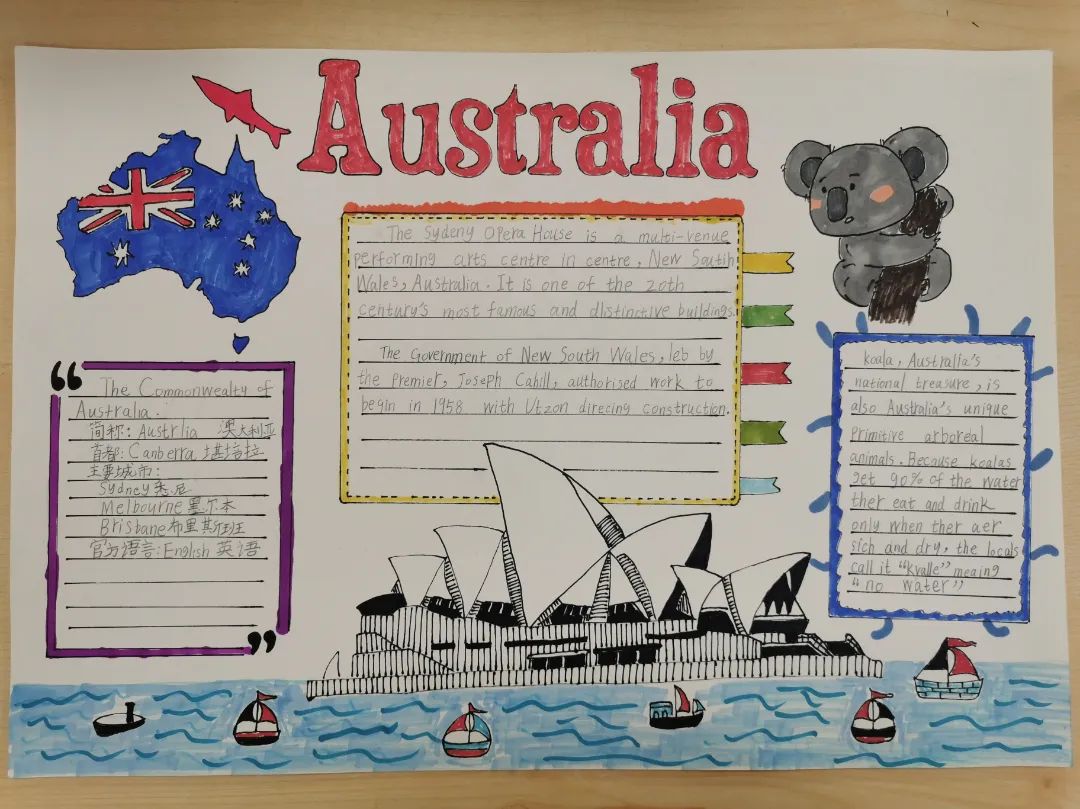 Australia
The Sydeny Opera House is a multi-venue
performing arts centre in centre, New South
Wales, Australia. It is one of the 20th
century's most famous and dlistinctive buildings.
The Government of New South Wales, leb by
the premier, Joseph Cahill, authorised work to
begin in 1958 with Utzon direcing construction.
The Commonwealty of
Australia.
简称: Austrlia 澳大利亚
首都: Canberra 堪培拉
主要城市:
Sydney 悉尼
Melbourne 墨尔本
Brisbane 布里斯班
官方语言: English 英语
koala, Australia's
national treasure, is
also Australia's unique
Primitive arboreal
animals. Because koalas
get 90% of the water
ther eat and drink
only when ther aer
sich and dry, the locals
call it "kvalle" meaing
"no water"